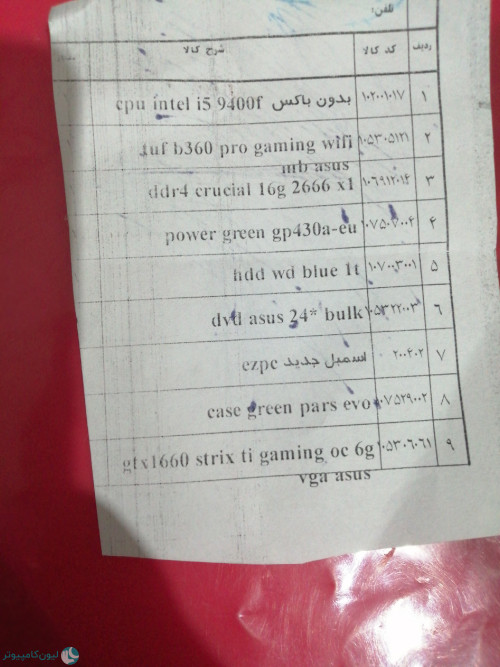 تلفن:
ردیف کد کالا شرح کالا
۱ ۱۰۲۰۰۱۰۱۷ cpu intel i5 9400f بدون باکس
۲ ۱۰۵۳۰۵۱۲۱ tuf b360 pro gaming wifi
mb asus
۳ ۱۰۶۹۱۲۰۱۲ ddr4 crucial 16g 2666 x1
۴ ۱۰۷۵۰۷۰۰۴ power green gp430a-eu
۵ ۱۰۷۰۰۳۰۰۱ hdd wd blue 1t
۶ ۱۰۵۳۲۲۰۰۳ dvd asus 24* bulk
۷ ۲۰۰۴۰۲ اسمبل جدید ezpc
۸ ۱۰۷۵۲۹۰۰۲ case green pars evo
۹ ۱۰۵۳۰۶۰۶۱ gtx1660 strix ti gaming oc 6g
vga asus
لیون‌کامپیوتر